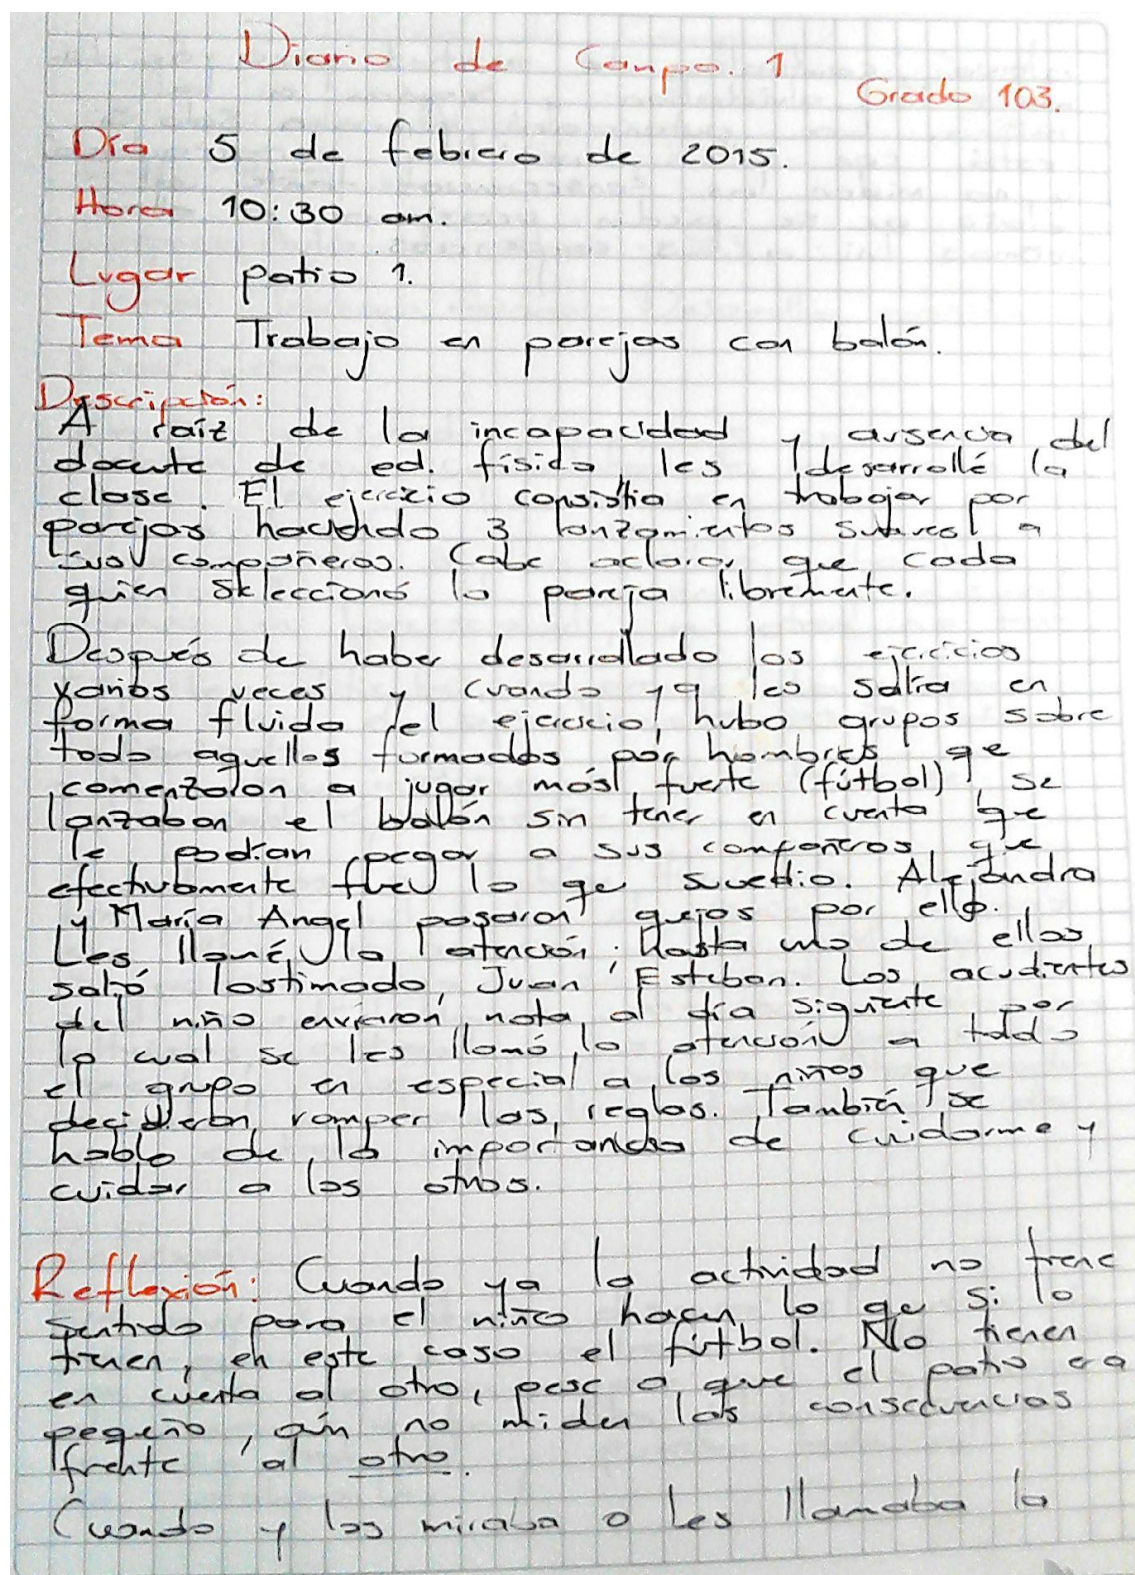 Diario de Campo. 1
Grado 103.
Día 5 de febrero de 2015.
Hora 10:30 am.
Lugar patio 1.
Tema Trabajo en parejas con balón.
Descripción:
A raíz de la incapacidad y ausencia del
docente de ed. física les desarrollé la
clase. El ejercicio consistia en trabajar por
parejas haciendo 3 lanzamientos suaves a
sus compañeros. Cabe aclarar que cada
quien seleccionó la pareja libremente.
Después de haber desarrollado los ejercicios
varios veces y cuando ya les salía en
forma fluida el ejercicio, hubo grupos sobre
todo aquellos formados por hombres qe
comenzaron a jugar más fuerte (fútbol), se
lanzaban el balón sin tener en cuenta que
le podían pegar a sus compañeros, que
efectivamente fue lo qe sucedio. Alejandra
y María Angel pasaron quejas por ello.
Les llamé la atención; hasta uno de ellos
salió lastimado, Juan Esteban. Los acudientes
del niño enviaron nota al día siguiente por
lo cual se les llamó la atención a todo
el grupo en especial a los niños que
decidieron romper las reglas. También se
hablo de la importancia de cuidarme y
cuidar a los otros.
Reflexión: Cuando ya la actividad no tiene
sentido para el niño hacen lo qe si lo
tienen, en este caso el fútbol. No tienen
en cuenta al otro, pese a que el patio era
peqeño, aún no miden las consecuencias
frente al otro.
Cuando y los miraba o les llamaba la